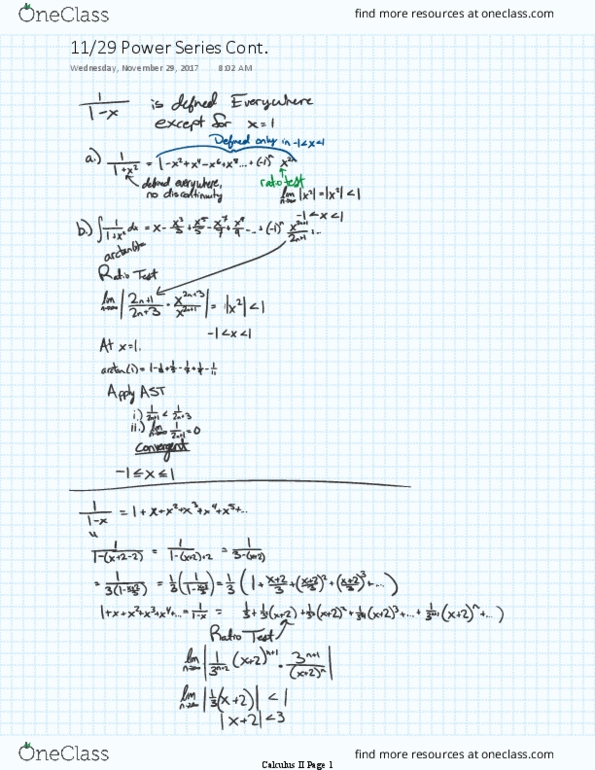 OneClass
find more resources at oneclass.com
11/29 Power Series Cont.
Wednesday, November 29, 2017 8:02 AM
1/(1-x) is defined Everywhere
except for x=1
Defined only in -1<x<1
a.) 1/(1+x²) = 1-x²+x⁴-x⁶+x⁸...+(-1)ⁿ x²ⁿ
defined everywhere, no discontinuity
ratio test
lim n→∞ |x²| = |x²| < 1
-1<x<1
b.) ∫ 1/(1+x²) dx = x - x³/3 + x⁵/5 - x⁷/7 + x⁹/9 - ... + (-1)ⁿ x²ⁿ⁺¹/(2n+1) ...
Ratio Test
lim n→∞ |(2n+1)/(2n+3) · x²ⁿ⁺³/x²ⁿ⁺¹| = |x²| < 1
-1<x<1
At x=1.
Apply AST
ii.) lim n→∞ 1/(2n+1) = 0
Convergent
-1≤x≤1
1/(1-x) = 1+x+x²+x³+x⁴+x⁵+...
1/(1-(x+2-2) = 1/(1-(x+2)+2) = 1/(3-(x+2))
= 1/(3(1-(x+2)/3)) = 1/3 (1/(1-(x+2)/3)) = 1/3 (1+(x+2)/3+((x+2)/3)²+((x+2)/3)³+...)
1+x+x²+x³+x⁴+... = 1/(1-x) = 1/3+1/3²(x+2)+1/3³(x+2)²+1/3⁴(x+2)³+...+1/3ⁿ⁺¹(x+2)ⁿ+...)
Ratio Test
lim n→∞ |1/3ⁿ⁺² (x+2)ⁿ⁺¹ · 3ⁿ⁺¹/(x+2)ⁿ|
lim n→∞ |1/3(x+2)| < 1
|x+2|<3
OneClass
find more resources at oneclass.com
Calculus II Page 1